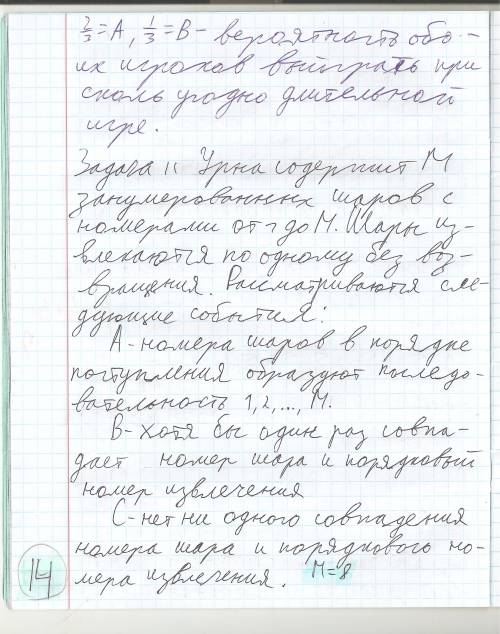 2/3 = A, 1/3 = B - вероятность обо-
их игроков выиграть при
сколь угодно длительной
игре.
Задача 11 Урна содержит М
занумерованных шаров с
номерами от 1 до М. Шары из-
влекаются по одному без воз-
вращения. Рассматриваются сле-
дующие события:
А-номера шаров в порядке
поступления образуют последо-
вательность 1, 2, ..., М.
В-хотя бы один раз совпа-
дает номер шара и порядковый
номер извлечения
С-нет ни одного совпадения
номера шара и порядкового но-
мера извлечения. М=8
14